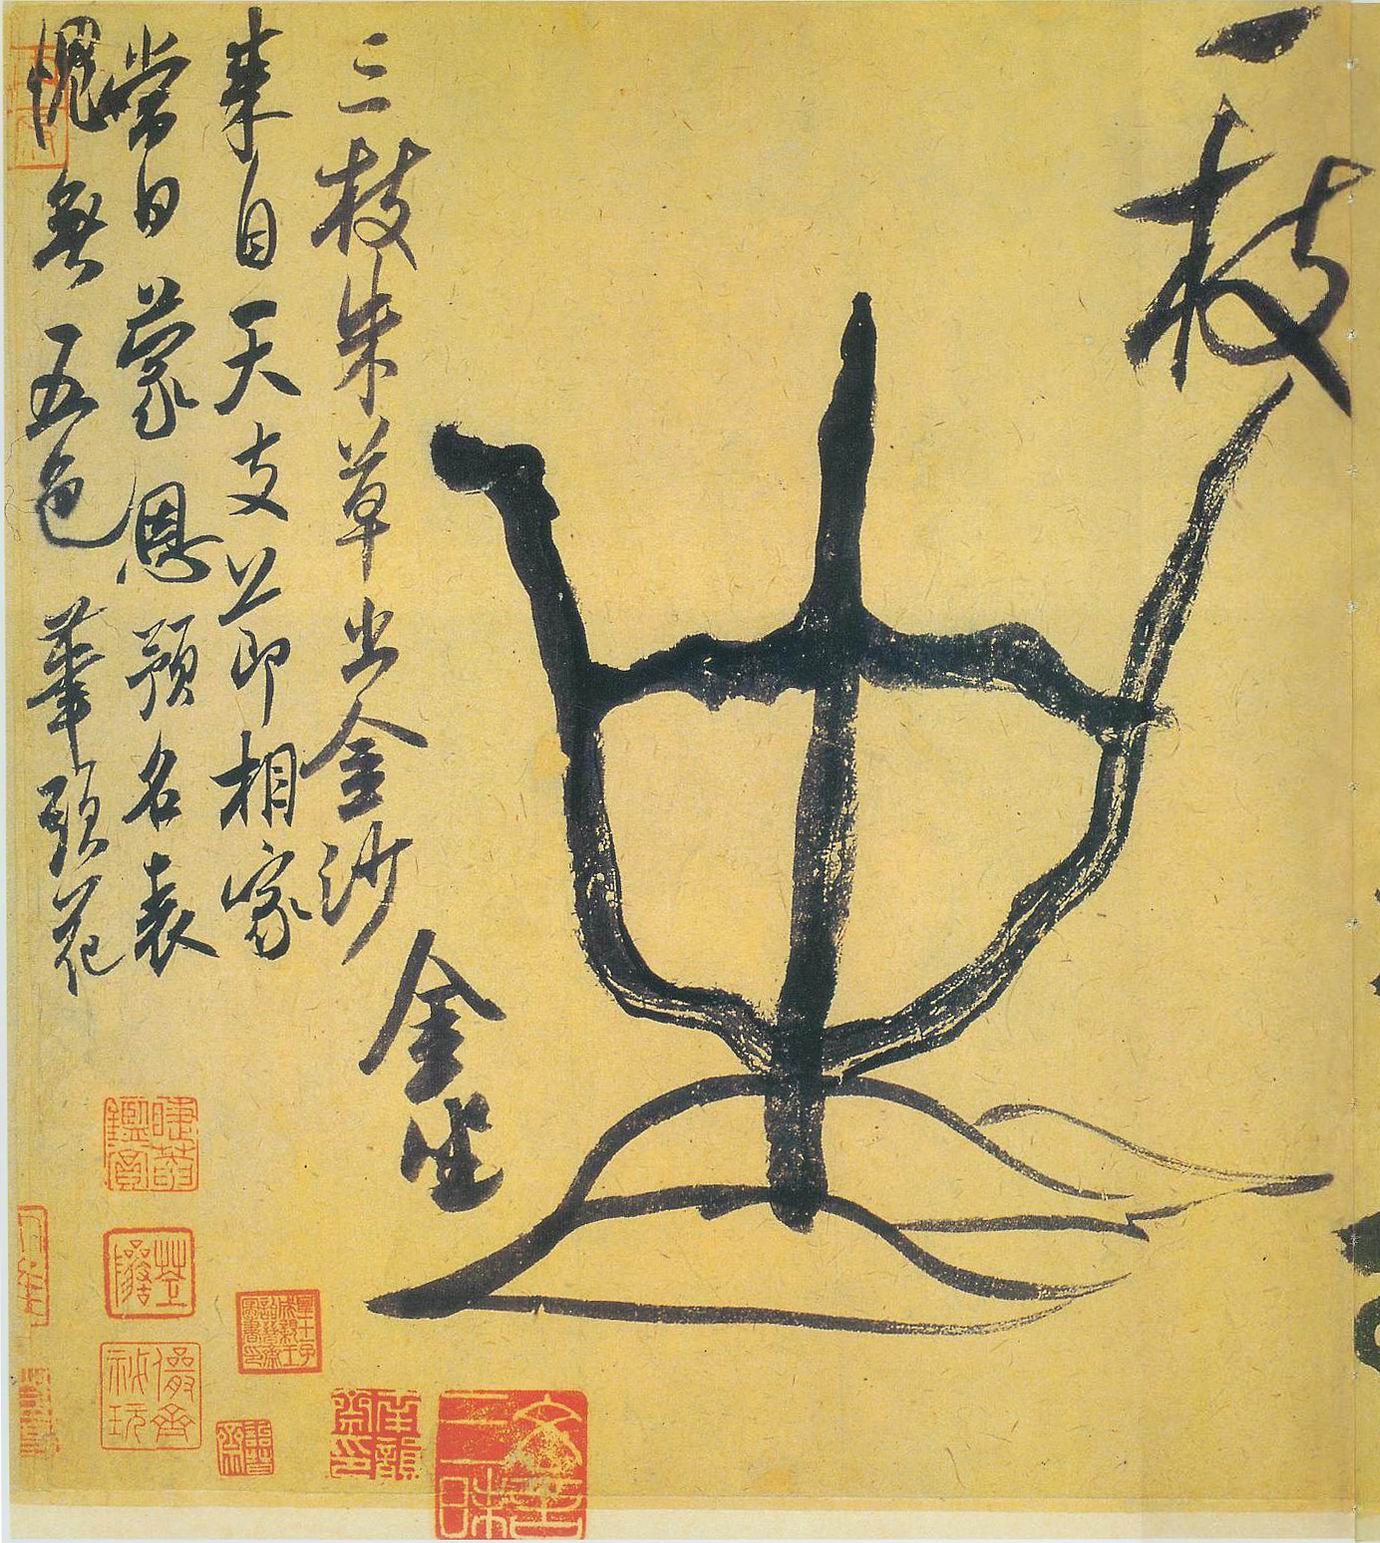 一枝
金坐
三枝朱草出金沙
來自天支節相家
當日蒙恩預名表
愧無五色筆頭花
儼齋秘玩